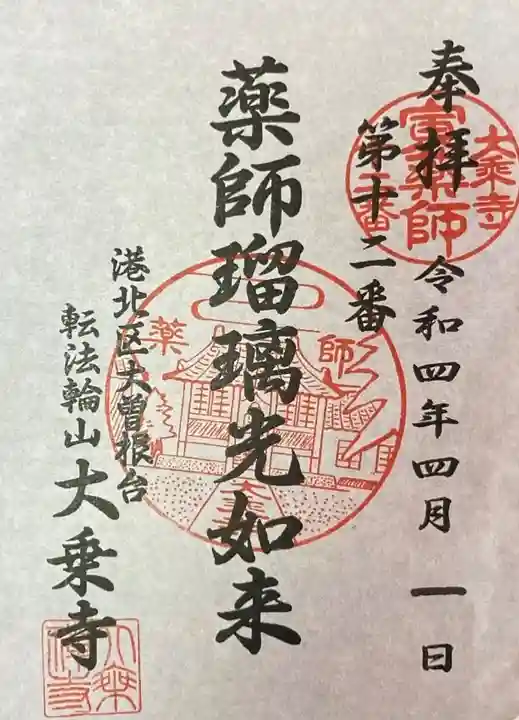 奉拝 令和四年四月一日
第十二番
薬師瑠璃光如来
港北区大曽根台
転法輪山 大乗寺
大乗寺
寅薬師
二番
薬師